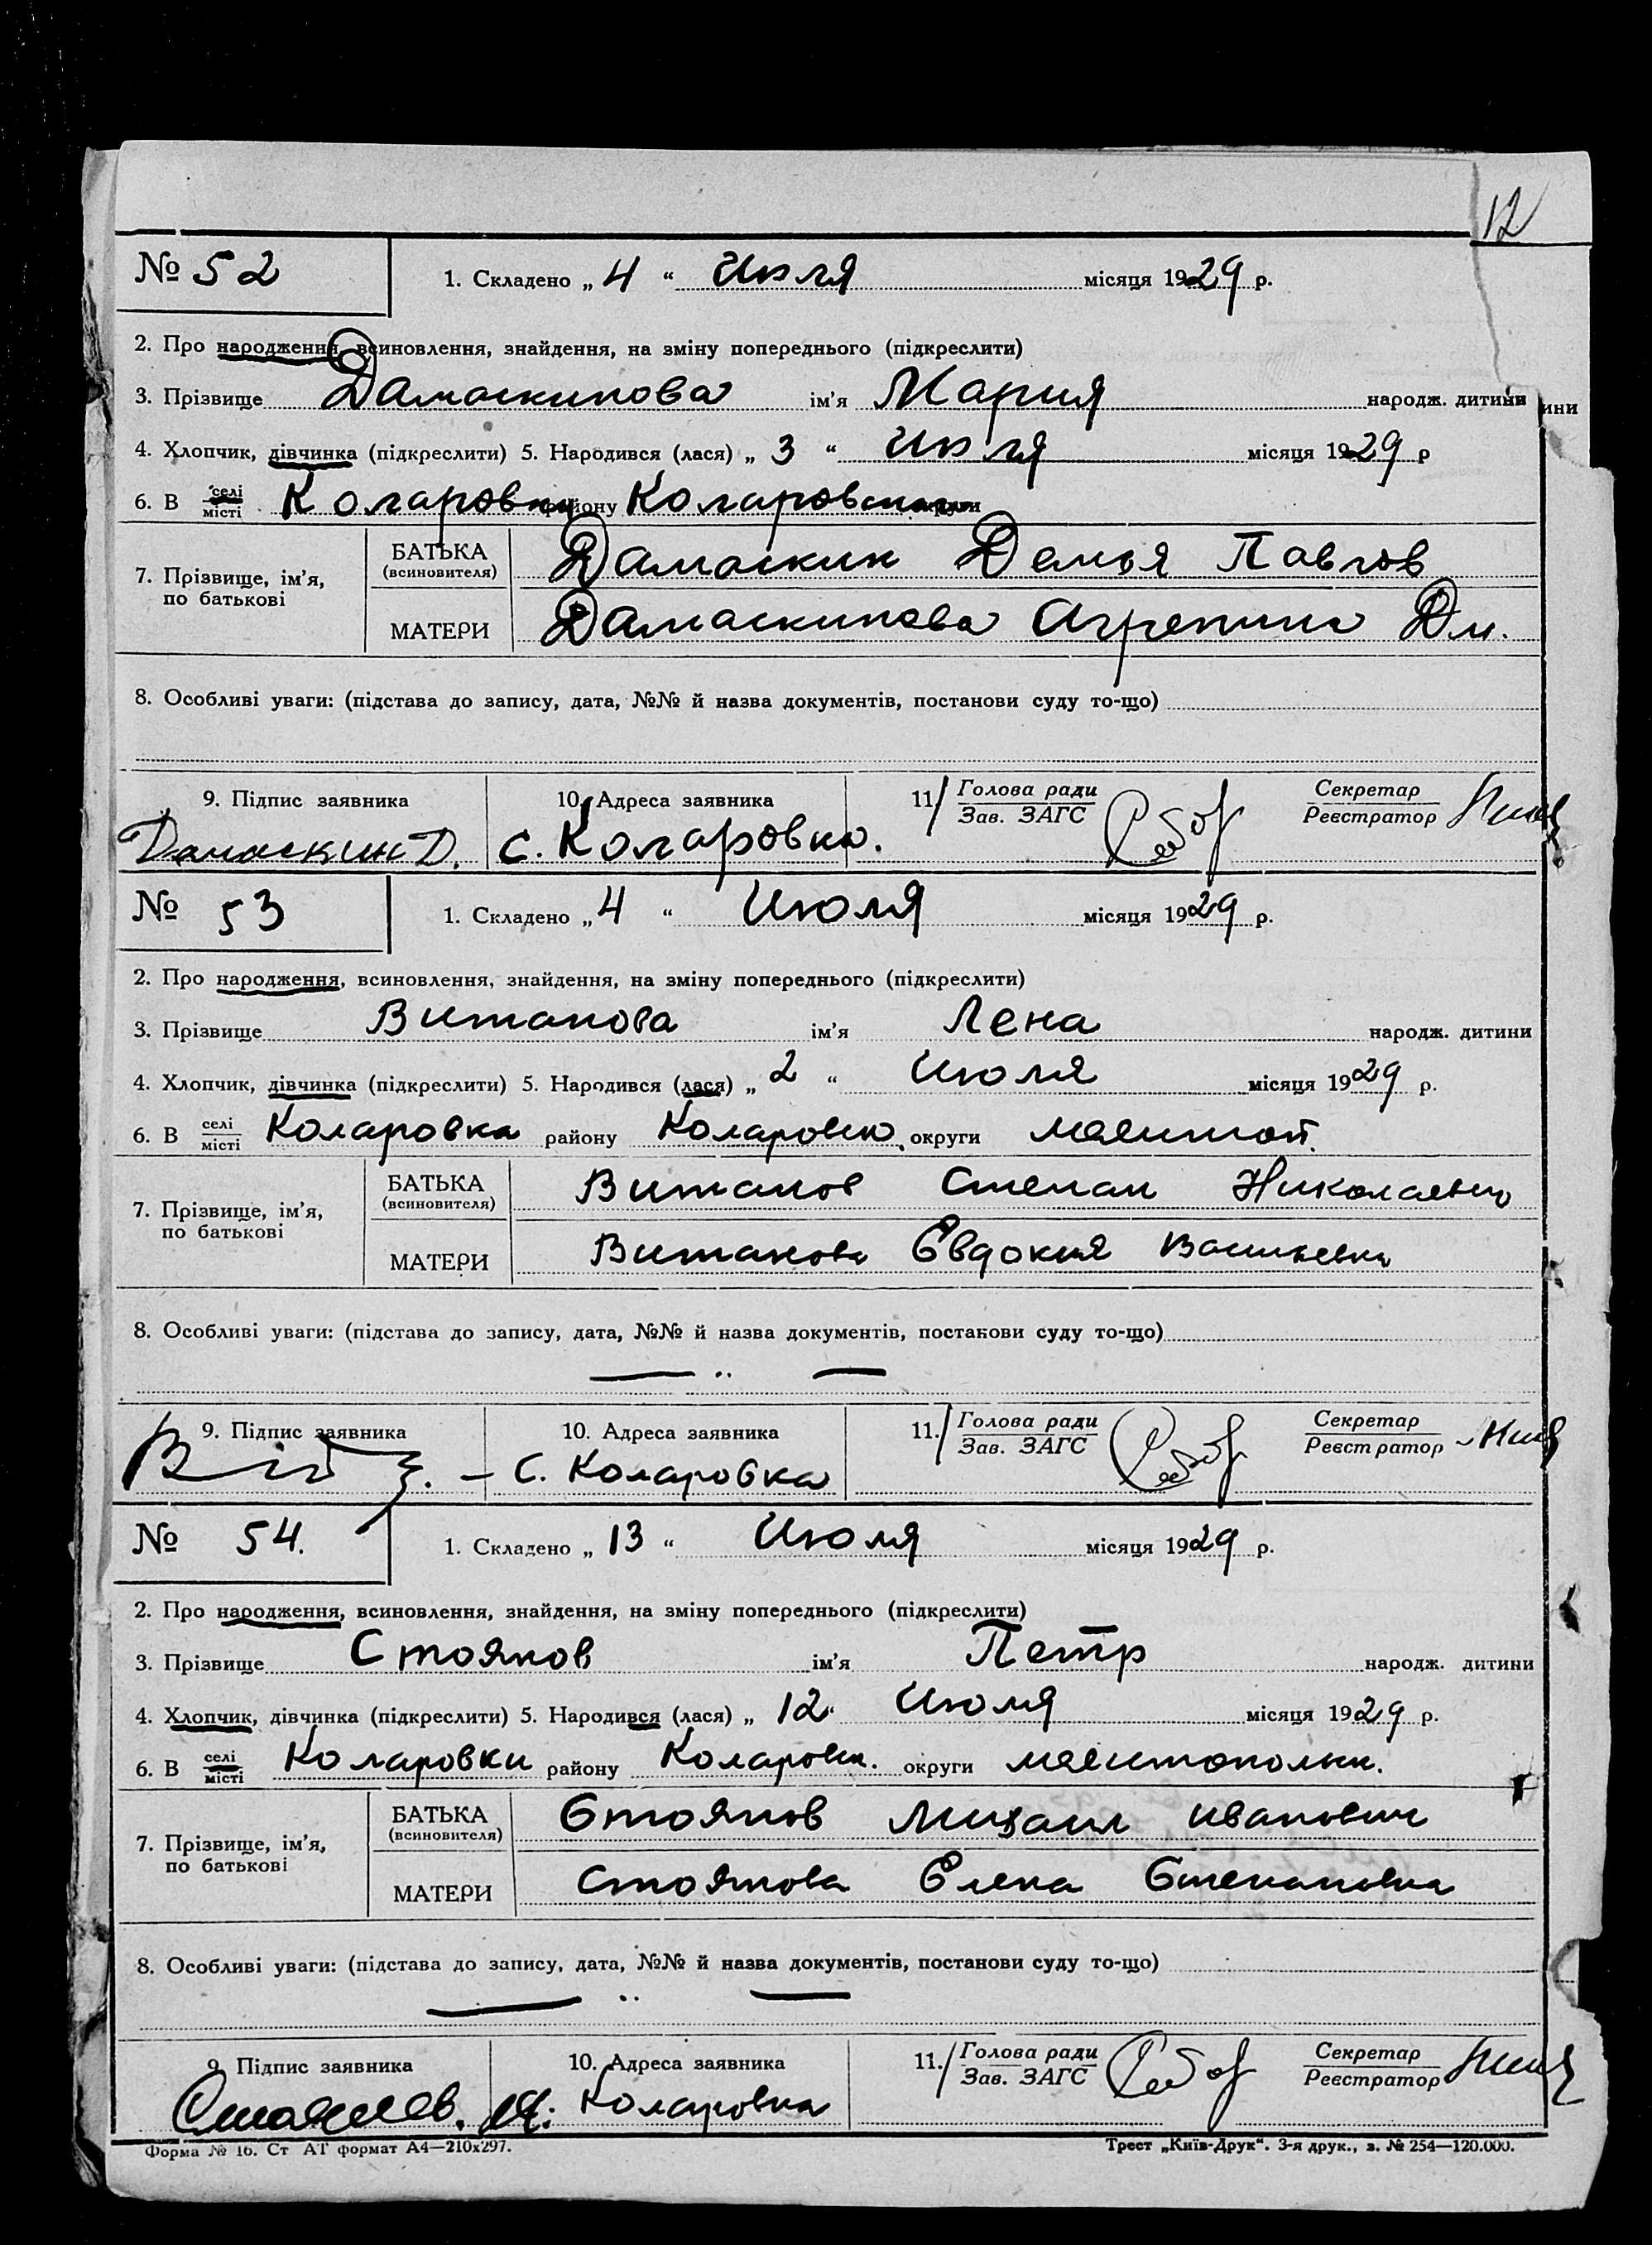 12
№ 52 1. Складено „ 4 “ Июля місяця 1929 р.
2. Про народження, всиновлення, знайдення, на зміну попереднього (підкреслити)
3. Прізвище Дамаскинова ім'я Мария народж. дитини ини
4. Хлопчик, дівчинка (підкреслити) 5. Народився (лася) „ 3 “ Июля місяця 1929 р
6. В селі місті Коларовки району Коларовского округи
7. Прізвище, ім'я, по батькові
БАТЬКА (всиновителя) Дамаскин Демья Павлов
МАТЕРИ Дамаскинова Агрепина Дм.
8. Особливі уваги: (підстава до запису, дата, №№ й назва документів, постанови суду то-що)
9. Підпис заявника 10. Адреса заявника 11. Голова ради Секретар
Зав. ЗАГС Реєстратор
Дамаскин Д. с. Коларовка.
№ 53 1. Складено „ 4 “ Июля місяця 1929 р.
2. Про народження, всиновлення, знайдення, на зміну попереднього (підкреслити)
3. Прізвище Витанова ім'я Лена народж. дитини
4. Хлопчик, дівчинка (підкреслити) 5. Народився (лася) „ 2 “ Июля місяця 1929 р.
6. В селі місті Коларовка району Коларовко округи мелитоп.
7. Прізвище, ім'я, по батькові
БАТЬКА (всиновителя) Витанов Степан Николаевич
МАТЕРИ Витанова Евдокия Васильевна
8. Особливі уваги: (підстава до запису, дата, №№ й назва документів, постанови суду то-що)
— ·· —
9. Підпис заявника 10. Адреса заявника 11. Голова ради Секретар
Зав. ЗАГС Реєстратор
— С. Коларовка
№ 54. 1. Складено „ 13 “ Июля місяця 1929 р.
2. Про народження, всиновлення, знайдення, на зміну попереднього (підкреслити)
3. Прізвище Стоянов ім'я Петр народж. дитини
4. Хлопчик, дівчинка (підкреслити) 5. Народився (лася) „ 12 “ Июля місяця 1929 р.
6. В селі місті Коларовки району Коларовк. округи мелитопольк.
7. Прізвище, ім'я, по батькові
БАТЬКА (всиновителя) Стоянов Михаил Иванович
МАТЕРИ Стоянова Елена Степановна
8. Особливі уваги: (підстава до запису, дата, №№ й назва документів, постанови суду то-що)
— ·· —
9. Підпис заявника 10. Адреса заявника 11. Голова ради Секретар
Зав. ЗАГС Реєстратор
Коларовка
Форма № 16. Ст АТ формат А4—210х297. Трест „Київ-Друк“. 3-я друк., з. № 254—120.000.